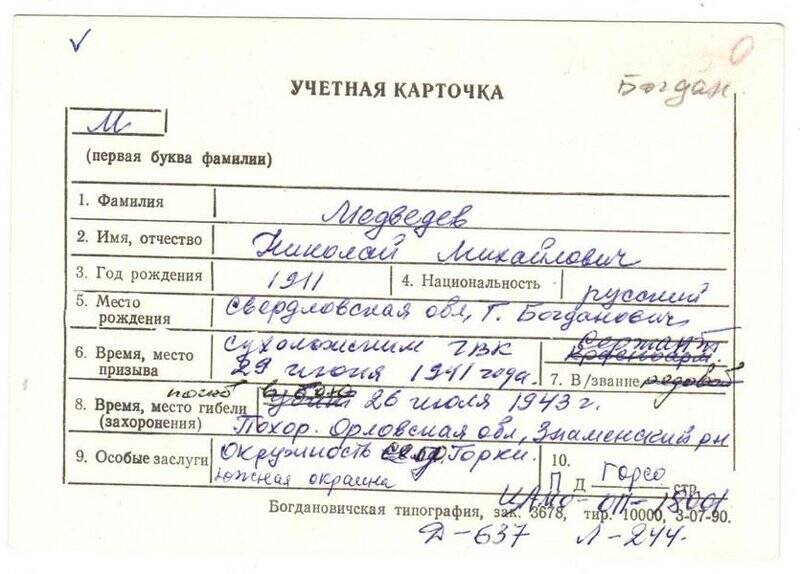 О
Богдан.
УЧЕТНАЯ КАРТОЧКА
М
(первая буква фамилии)
1. Фамилия Медведев
2. Имя, отчество Николай Михайлович
3. Год рождения 1911 4. Национальность русский
5. Место рождения Свердловская обл, г. Богданович
6. Время, место призыва Сухоложским ГВК сержант
29 июня 1941 года. 7. В/звание рядовой
погиб в бою
8. Время, место гибели 26 июля 1943 г.
(захоронения) Похор. Орловская обл, Знаменский рн
9. Особые заслуги Окружность Горки. 10.
южная окраина П Д стр.
ЦАМО-ОП-18001
Богдановичская типография, зак. 3678, тир. 10000, 3-07-90.
Д-637 Л-244.